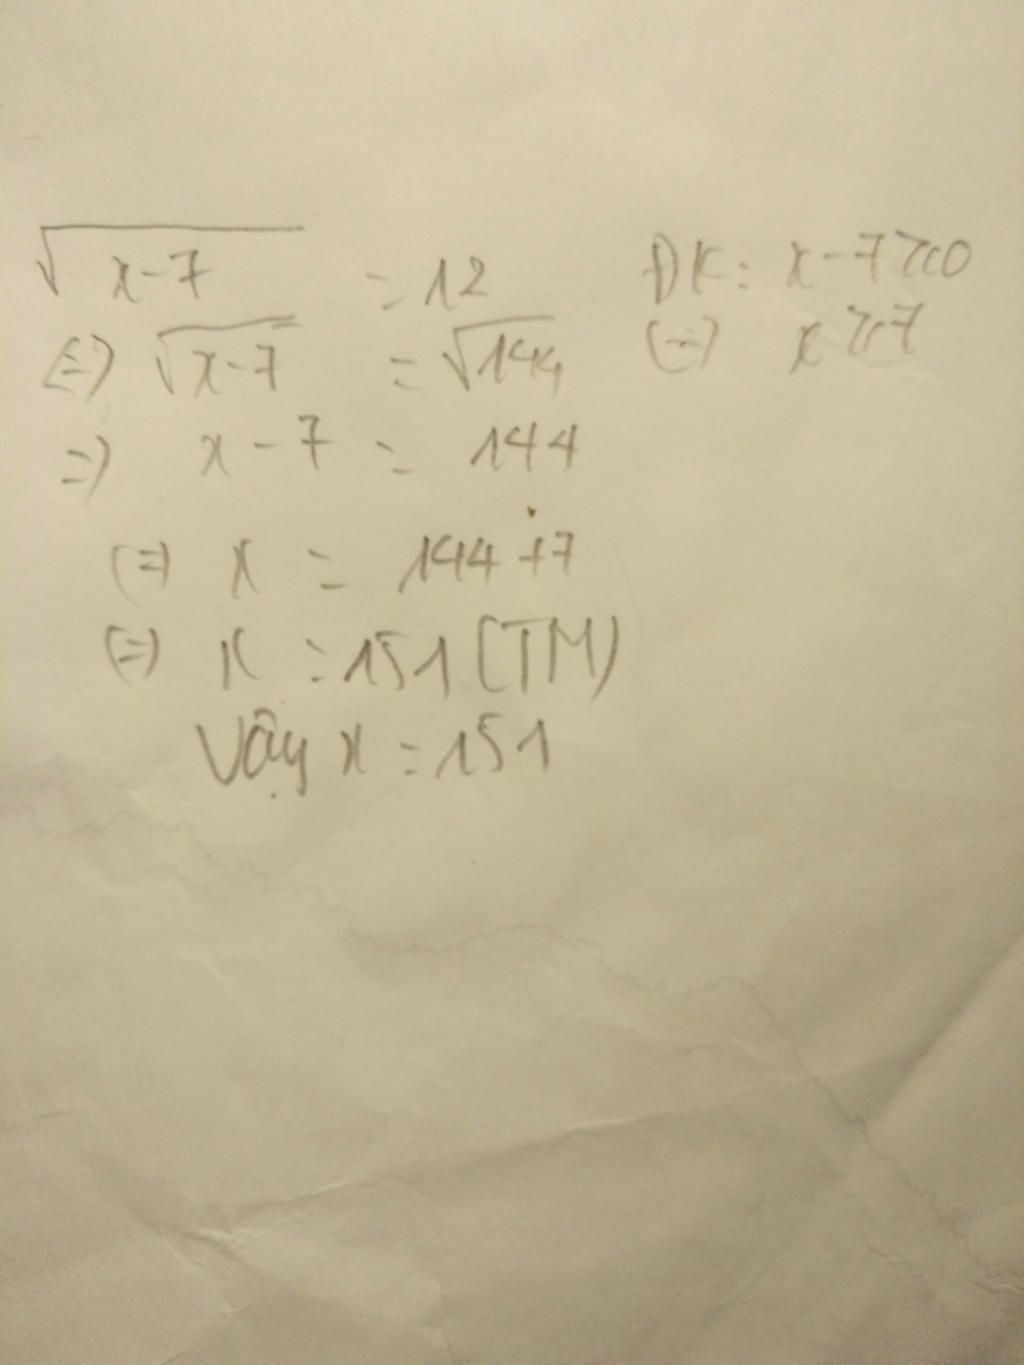 √x-7 = 12 ĐK: x-7 ≥ 0
(=) √x-7 = √144 (=) x ≥ 7
=) x - 7 = 144
(=) x = 144 + 7
(=) x = 151 (TM)
Vậy x = 151